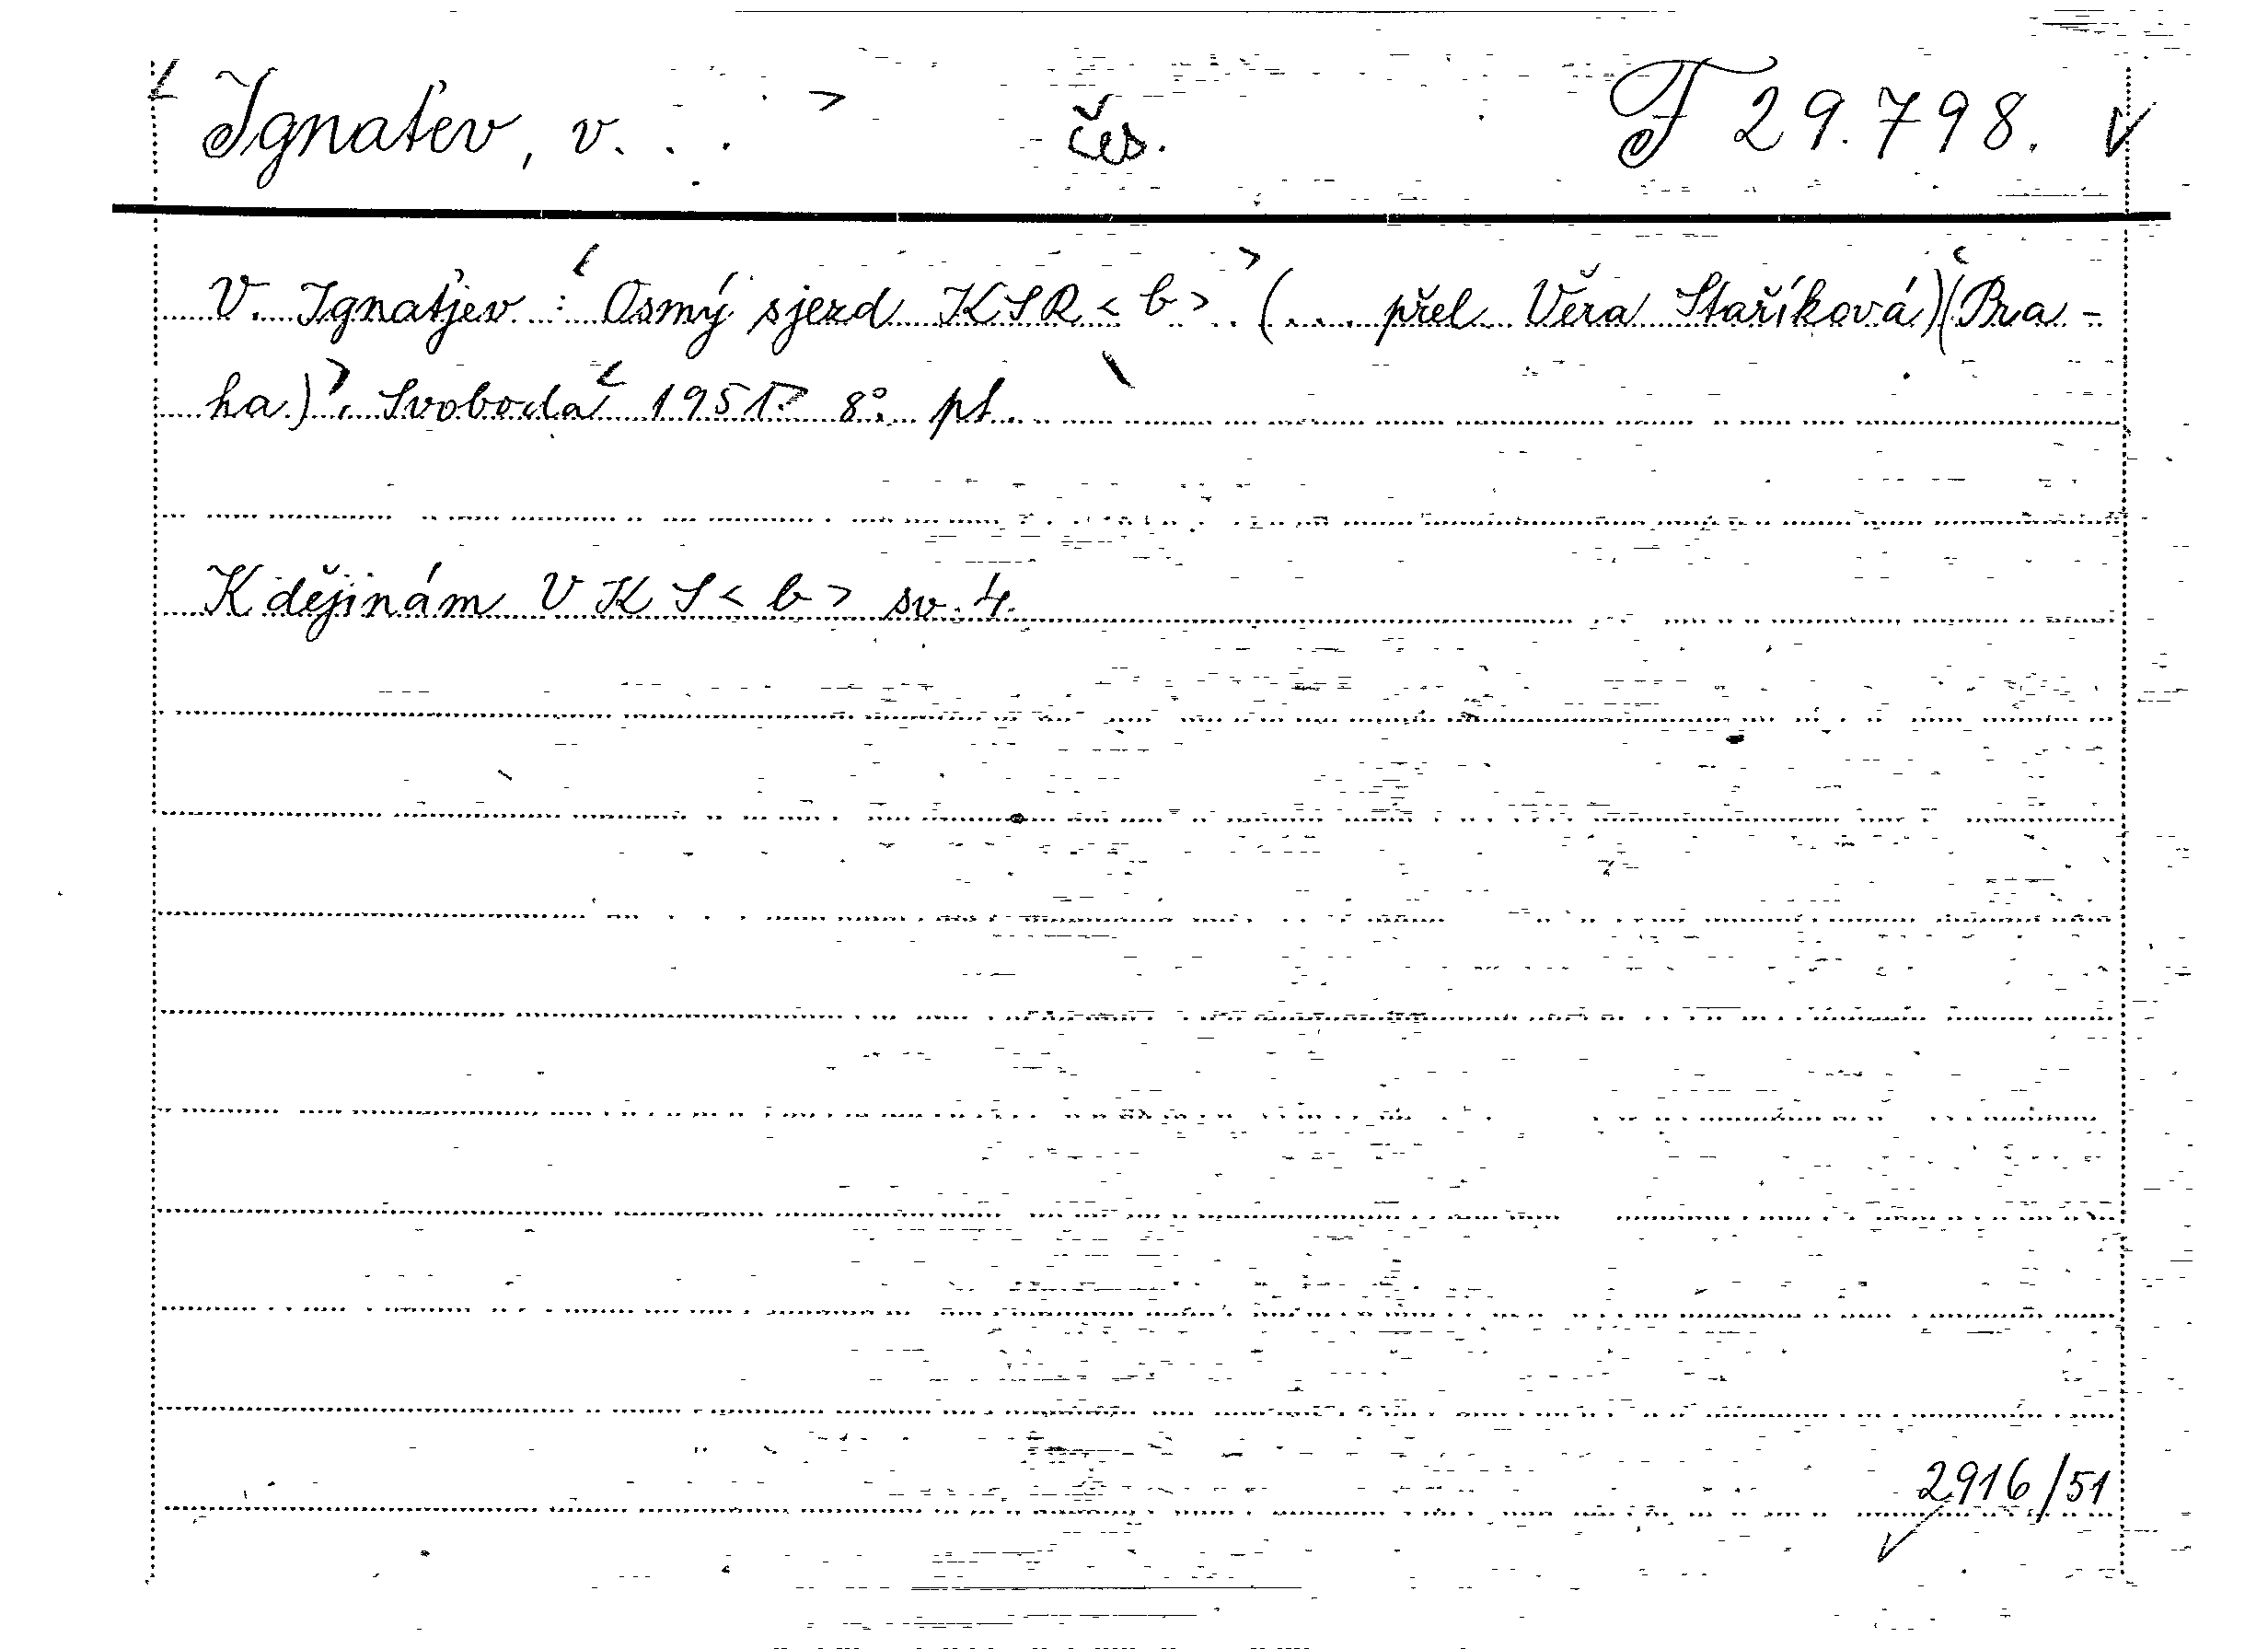 Ignaťev, V. . . čes. F 29.798.
V. Ignaťjev : Osmý sjezd KSR < b > . (... přel. Věra Staříková) (Pra-
ha), Svoboda 1951. 8°. pt.
K dějinám VKS < b > sv. 4.
2916/51